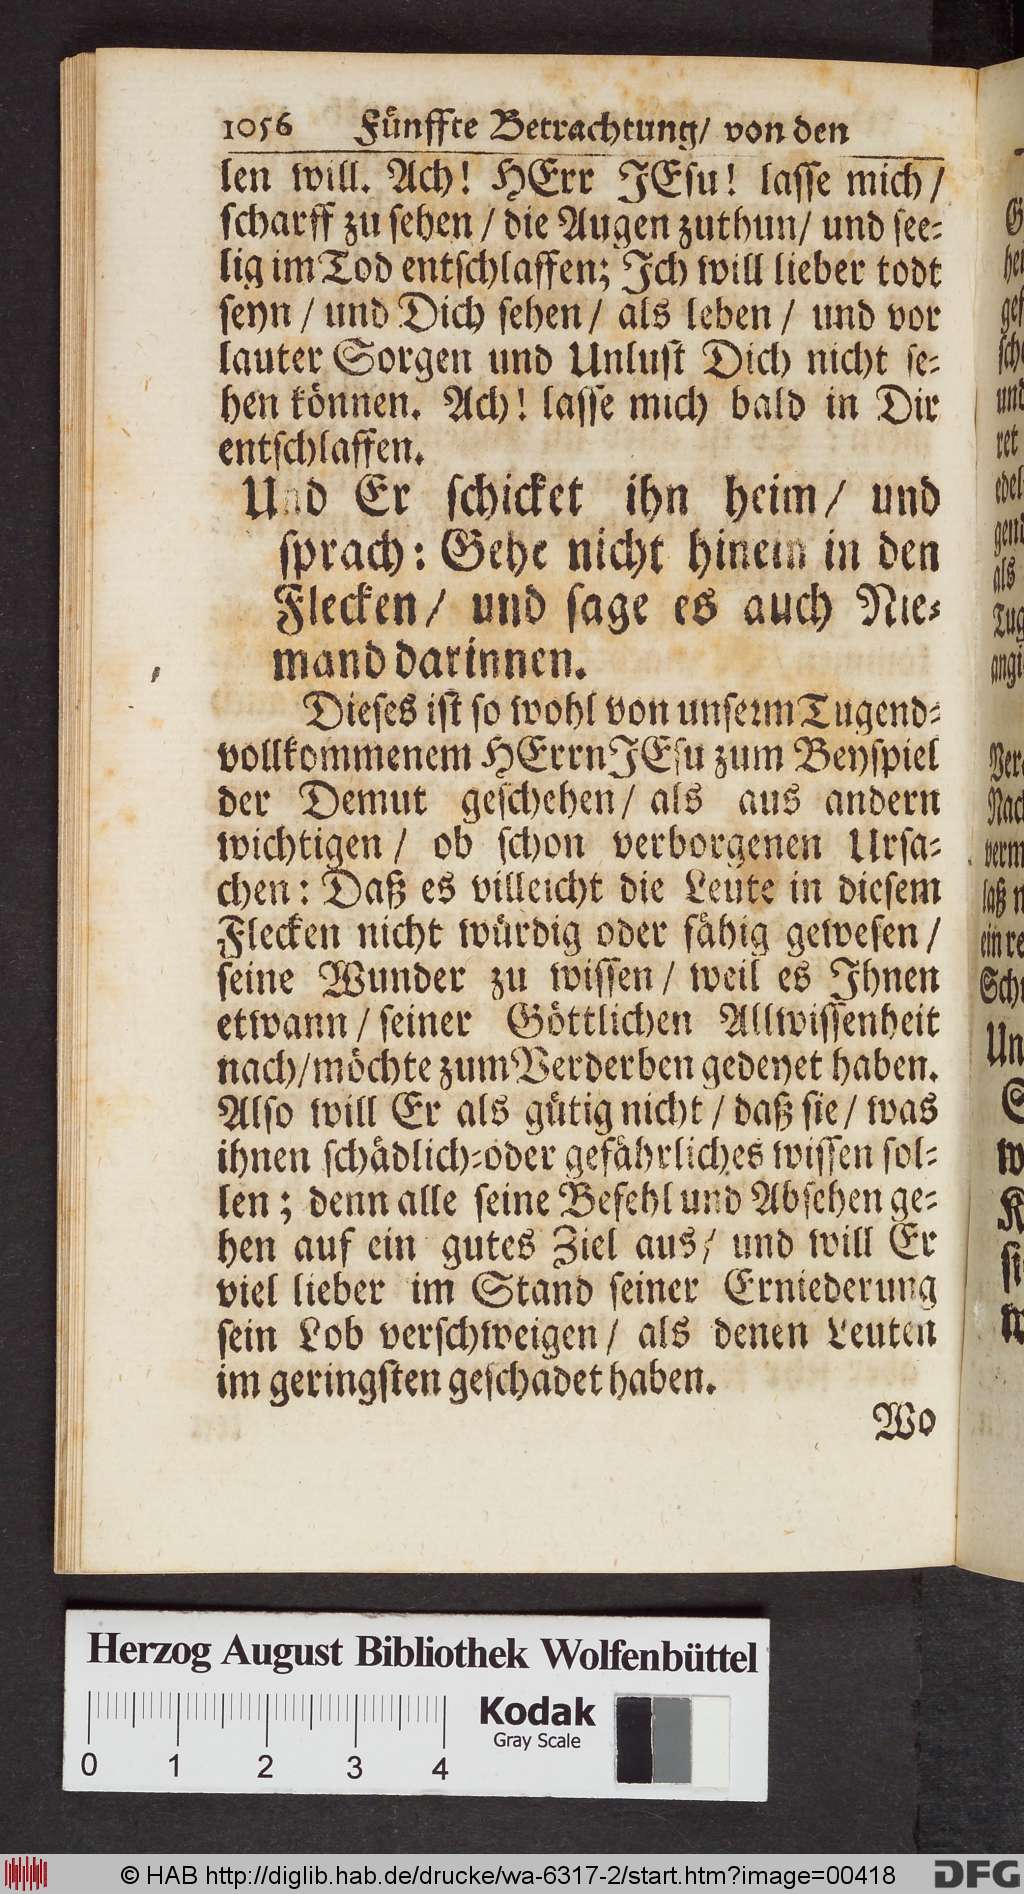 1056 Fünffte Betrachtung/ von den
len will. Ach! HErr JEsu! lasse mich/
scharff zu sehen / die Augen zuthun/ und see-
lig im Tod entschlaffen; Jch will lieber todt
seyn / und Dich sehen/ als leben / und vor
lauter Sorgen und Unlust Dich nicht se-
hen können. Ach! lasse mich bald in Dir
entschlaffen.
Und Er schicket ihn heim/ und
sprach: Gehe nicht hinein in den
Flecken/ und sage es auch Nie-
mand darinnen.
Dieses ist so wohl von unserm Tugend-
vollkommenem HErrn JEsu zum Beyspiel
der Demut geschehen/ als aus andern
wichtigen / ob schon verborgenen Ursa-
chen: Daß es villeicht die Leute in diesem
Flecken nicht würdig oder fähig gewesen /
seine Wunder zu wissen / weil es Jhnen
etwann / seiner Göttlichen Allwissenheit
nach/möchte zum Verderben gedeyet haben.
Also will Er als gütig nicht / daß sie / was
ihnen schädlich-oder gefährliches wissen sol-
len ; denn alle seine Befehl und Absehen ge-
hen auf ein gutes Ziel aus/ und will Er
viel lieber im Stand seiner Erniederung
sein Lob verschweigen/ als denen Leuten
im geringsten geschadet haben.
Wo
Herzog August Bibliothek Wolfenbüttel
Kodak
Gray Scale
0 1 2 3 4
© HAB http://diglib.hab.de/drucke/wa-6317-2/start.htm?image=00418
DFG